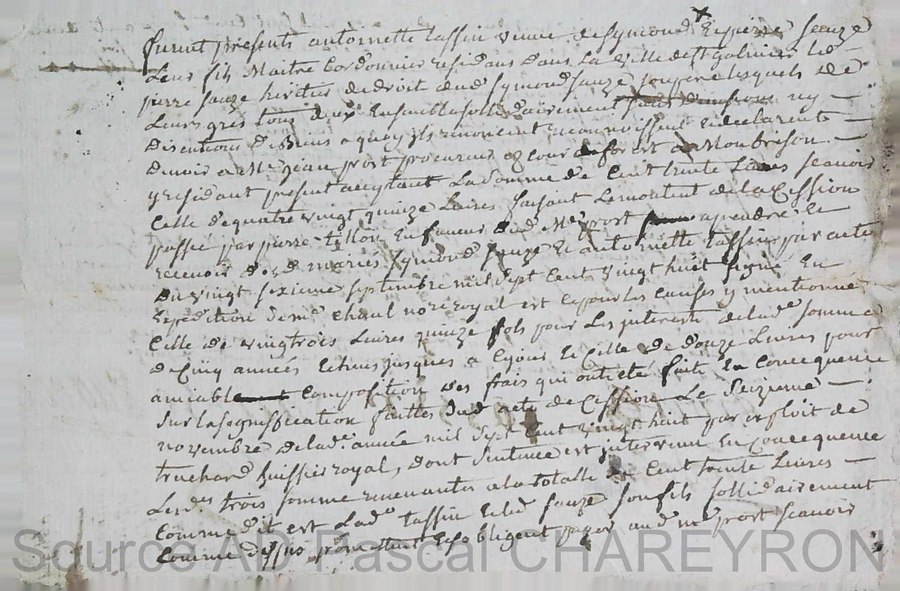 furent presents antoinette tassin veuve de symond Et pierre sauze
Leur fils Maitre Cordonnier residans dans La Ville de St galmier led
pierre sauze heritier de droit dud symond sauze son pere lesquels de
Leurs grés tous deux Ensemble sollidairement ny
discution de Biens a quoy ils renoncent reconnoissent Et declarent
devoir a Mre jean prort procureur Es cour de forest a Montbrison
y residant present acceptant La somme de Cent trente Livres scauoir
Celle de quatre vingt quinze Livres faisant Le montant de la Cession
passée par pierre tillon En faveur dud Me prort a prendre Et
recevoir desd mariés symond sauze Et antoinette tassin par acte
du vingt sixieme septembre mil sept Cent vingt huit signé En
Expedition de me Chaul nore royal Et pour les Causes y mentionné
Celle de vingt trois Livres quinze sols pour Les interets de lade somme
de Cinq années Echeus jusques a Ce jour Et Celle de douze Livres pour
amiable Composition des frais qui ont eté faits En Concequence
sur la signification faitte dud acte de Cession Le seizieme
novembre de lade année mil sept Cent vingt huit par exploit de
truchard huissier royal, dont sentence est intervenu En Concequence
Lesdes trois somme revenantes a la totalle de Cent trente Livres
Comme dit est Lade tassin Et led sauze son fils sollidairement
Comme dessus promettent Et sobligent payer aud me prort scauoir
Source AD Pascal CHAREYRON